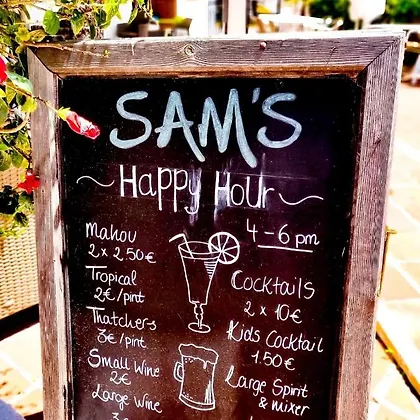 SAM'S
Happy Hour
4 - 6 pm
Mahou
2 x 2.50€
Tropical
2€/pint
Thatchers
3€/pint
Small Wine
2€
Large Wine
Cocktails
2 x 10€
Kids Cocktail
1.50€
Large Spirit
& Mixer